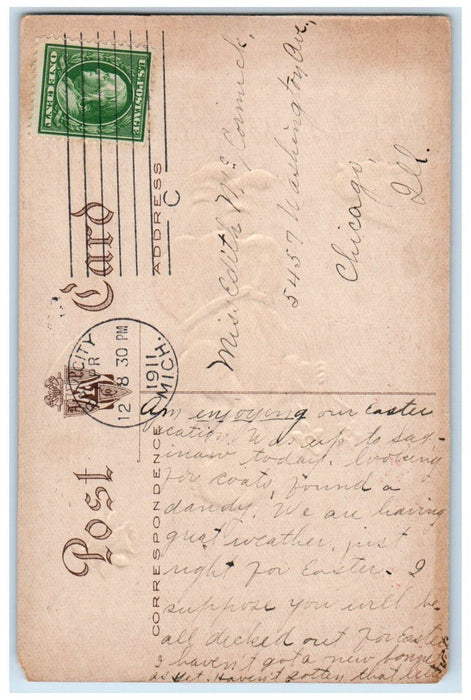 U.S. POSTAGE
ONE CENT
Post Card
ADDRESS
C
CITY
APR
12
8 30 PM
1911
MICH.
Miss Edith McCormick,
5457 Washington Ave,
Chicago,
Ill.
CORRESPONDENCE
Am enjoying our easter
cation. Was up to sag-
inaw today. looking
for coats, found a
dandy. We are having
great weather, just
right for Easter. I
suppose you will be
all decked out for Easter
I haven't got a new bonnet
as yet. Haven't gotten that